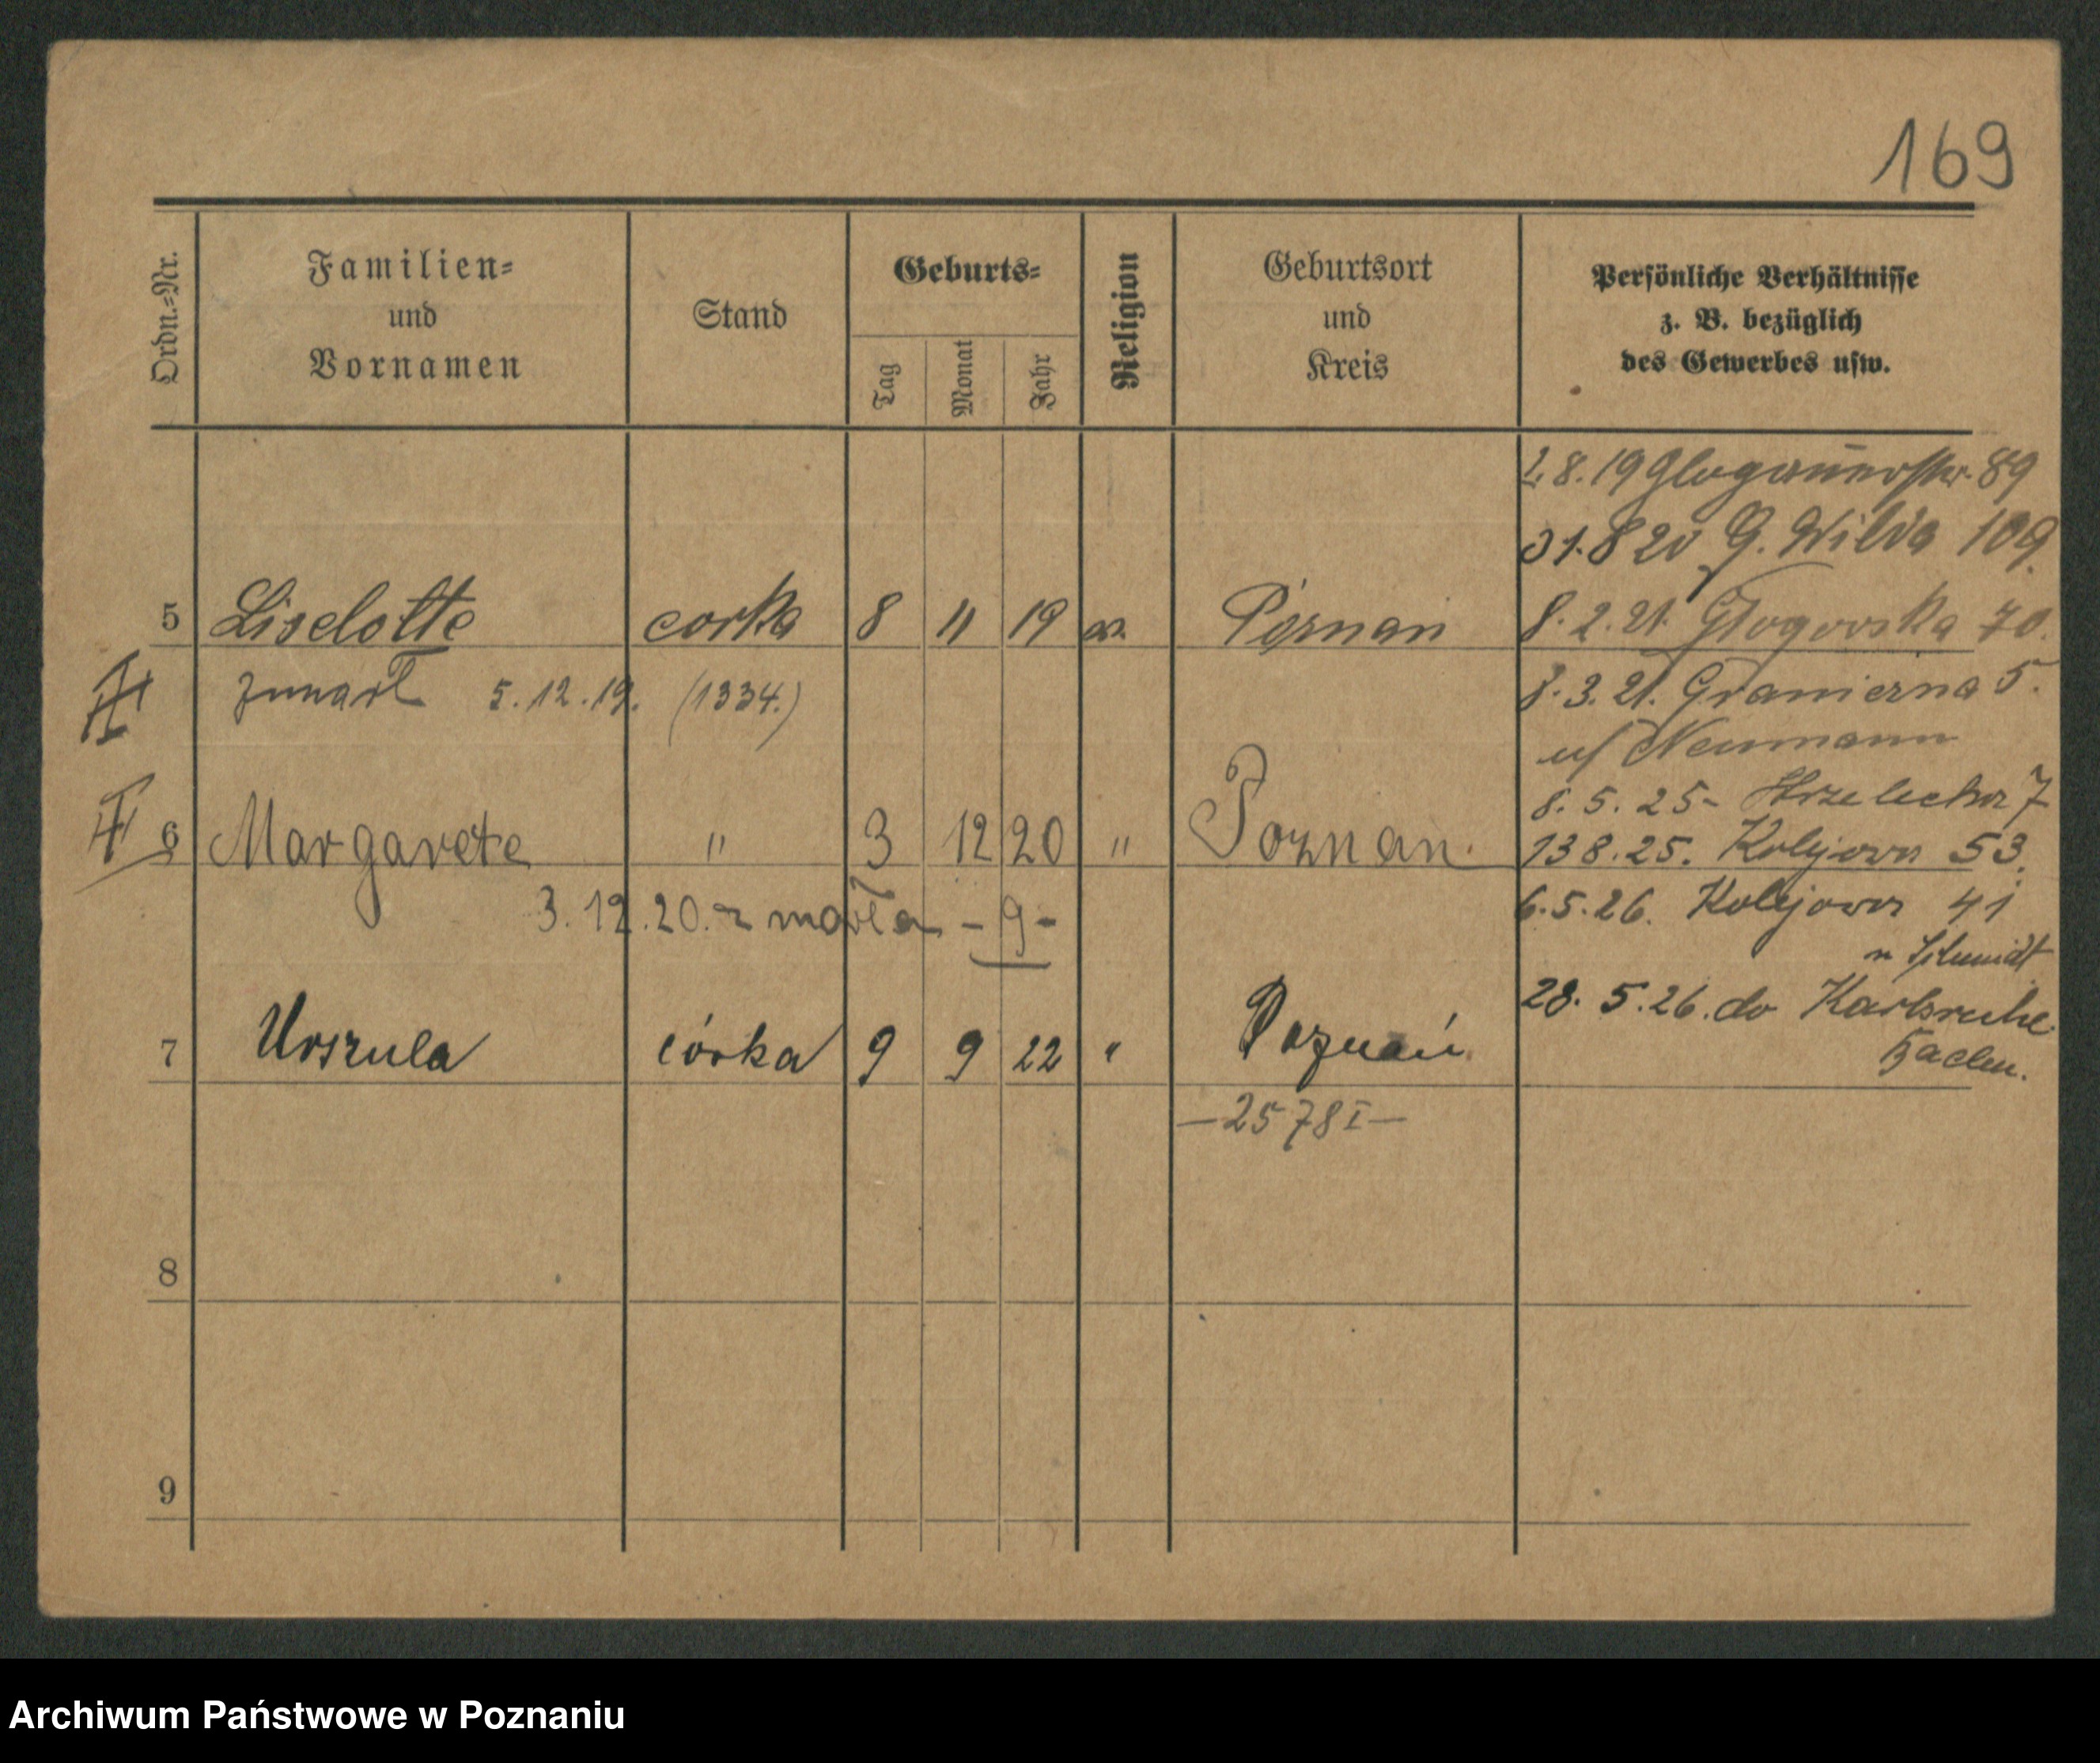 169
Ordn.=Nr. Familien= und Vornamen Stand Geburts= Tag Monat Jahr Religion Geburtsort und Kreis Persönliche Verhältnisse z. B. bezüglich des Gewerbes usw.
8. 19 Glogauerstr. 89
31.8 20 G. Wilda 109.
5 Liselotte corka 8 11 19 Poznan 8. 2. 21. Głogowska 70.
zmarł 5. 12. 19. (1334.) 8. 3. 21. Granierna 5.
u/ Neumann
8. 5. 25 - 7
6 Margarete " 3 12 20 " Poznan. 13 8. 25. Kolejowa 53.
3. 12. 20. zmarła - 9 - 6. 5. 26. Kolejowa 41
u Schmidt
28. 5. 26. do Karlsruhe
7 Urszula córka 9 9 22 " Poznań Baden.
— 2578 I —
8
9
Archiwum Państwowe w Poznaniu